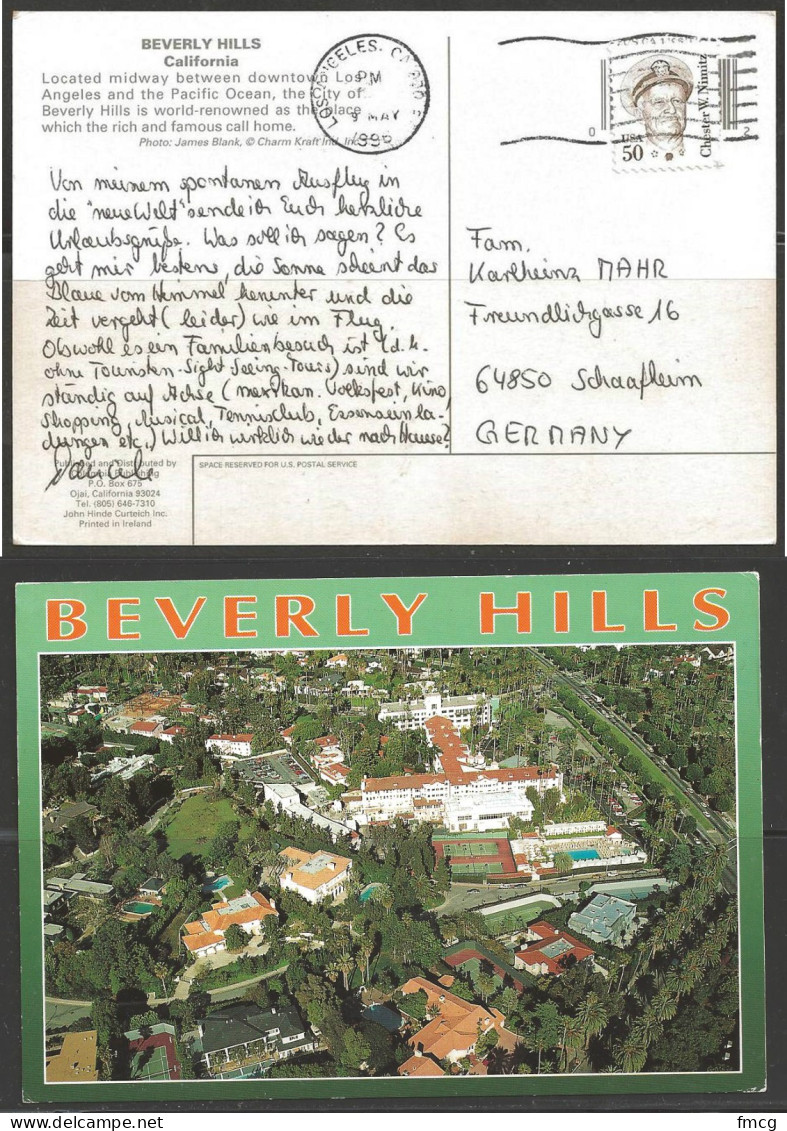 BEVERLY HILLS
California
Located midway between downtown Los
Angeles and the Pacific Ocean, the City of
Beverly Hills is world-renowned as the place
which the rich and famous call home.
Photo: James Blank, © Charm Kraft Ind. Inc.
LOS ANGELES, CA
PM
9 MAY
1996
USA
50
Chester W. Nimitz
0
2
Von meinem spontanen Ausflug in
die "neue Welt" sende ich Euch herzliche
Urlaubsgrüße. Was soll ich sagen? Es
geht mir bestens, die Sonne scheint das
Blaue vom Himmel herunter und die
Zeit vergeht (leider) wie im Flug.
Obwohl es ein Familienbesuch ist (d.h.
ohne Touristen-Sight-Seeing-Tours) sind wir
ständig auf Achse (mexikan. Volksfest, Kino,
Shopping, Musical, Tennisclub, Essenseinla-
dungen etc.) Will ich wirklich wieder nach Hause?
Fam.
Karlheinz MAHR
Freundlichgasse 16
64850 Schaafheim
GERMANY
Published and Distributed by
Publishing
P.O. Box 675
Ojai, California 93024
Tel. (805) 646-7310
John Hinde Curteich Inc.
Printed in Ireland
SPACE RESERVED FOR U.S. POSTAL SERVICE
BEVERLY HILLS
fmcg